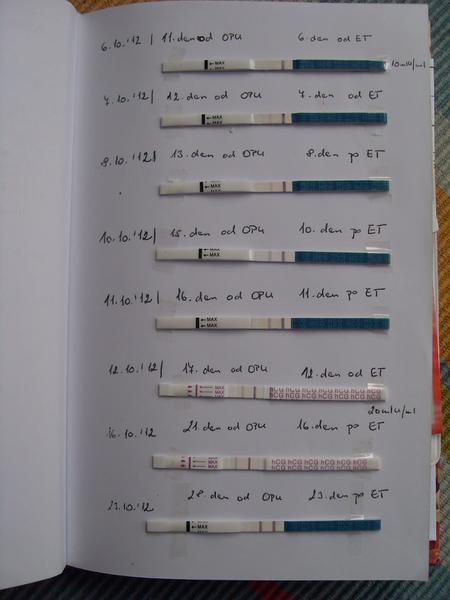 6.10.'12 | 11.den od OPU 6.den od ET
←MAX
10mlU/ml
7.10.'12 | 12.den od OPU 7.den od ET
←MAX
8.10.'12 | 13.den od OPU 8.den po ET
←MAX
10.10.'12 | 15.den od OPU 10.den po ET
←MAX
11.10.'12 | 16.den od OPU 11.den po ET
←MAX
12.10.'12 | 17.den od OPU 12.den od ET
MAX hCG hCG hCG hCG hCG hCG
hCG hCG hCG hCG hCG hCG
20mlU/ml
16.10.'12 21.den od OPU 16.den po ET
MAX hCG hCG hCG hCG hCG hCG
hCG hCG hCG hCG hCG hCG
23.10.'12 28.den od OPU 23.den po ET
←MAX